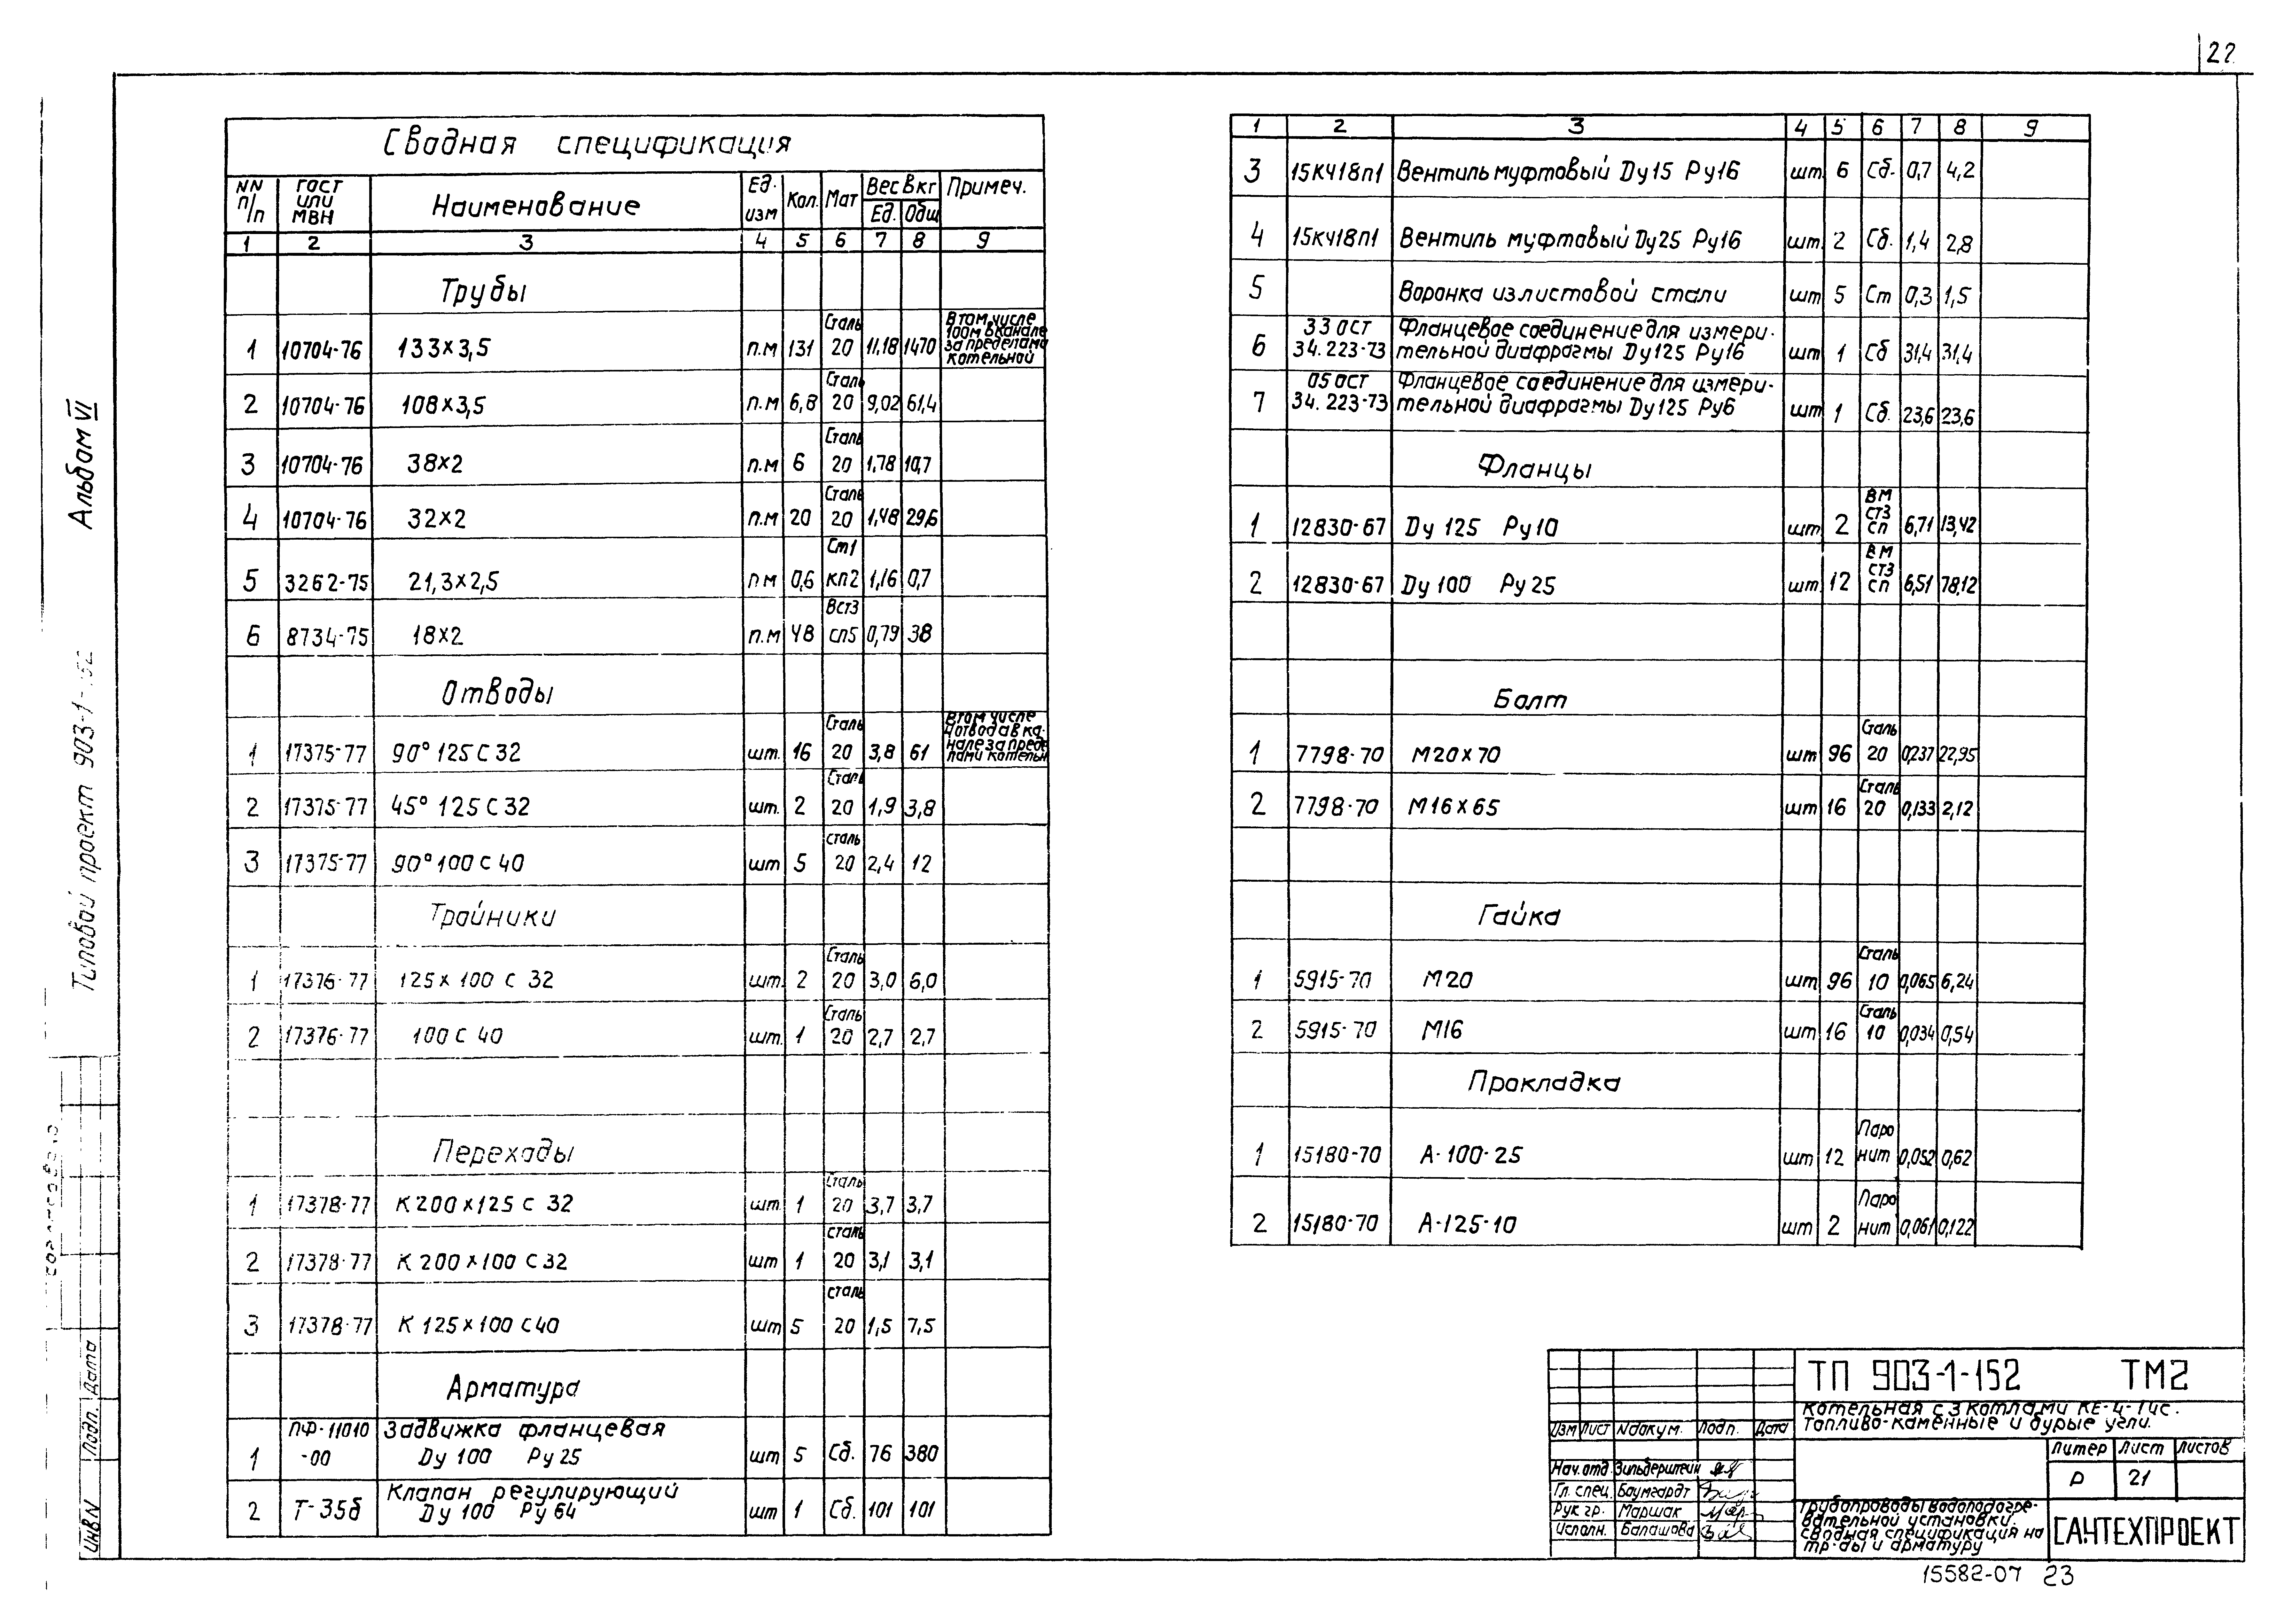 22
Сводная спецификация
NN п/п ГОСТ или МВН Наименование Ед. изм Кол. Мат Вес в кг Ед. Общ Примеч.
1 2 3 4 5 6 7 8 9
Трубы
1 10704-76 133×3,5 п.м 131 Сталь 20 11,18 1470 В том числе 100м в канале за пределами котельной
2 10704-76 108×3,5 п.м 6,8 Сталь 20 9,02 61,4
3 10704-76 38×2 п.м 6 Сталь 20 1,78 10,7
4 10704-76 32×2 п.м 20 Сталь 20 1,48 29,6
5 3262-75 21,3×2,5 п м 0,6 Ст1 кп2 1,16 0,7
6 8734-75 18×2 п.м 48 Вст3 сп5 0,79 38
Отводы
1 17375-77 90° 125 С 32 шт. 16 Сталь 20 3,8 61 В том числе 4 отвода в канале за пределами котельн
2 17375-77 45° 125 С 32 шт. 2 Сталь 20 1,9 3,8
3 17375-77 90° 100 С 40 шт 5 сталь 20 2,4 12
Тройники
1 17376-77 125×100 С 32 шт. 2 Сталь 20 3,0 6,0
2 17376-77 100 С 40 шт. 1 Сталь 20 2,7 2,7
Переходы
1 17378-77 К 200×125 С 32 шт. 1 Сталь 20 3,7 3,7
2 17378-77 К 200×100 С 32 шт 1 сталь 20 3,1 3,1
3 17378-77 К 125×100 С40 шт 5 сталь 20 1,5 7,5
Арматура
1 ПФ-11010 -00 Задвижка фланцевая Dу 100 Ру 25 шт 5 Сб. 76 380
2 Т-35б Клапан регулирующий Dу 100 Ру 64 шт 1 Сб. 101 101
1 2 3 4 5 6 7 8 9
3 15КЧ18п1 Вентиль муфтовый Dу15 Ру16 шт. 6 Сб. 0,7 4,2
4 15КЧ18п1 Вентиль муфтовый Dу25 Ру16 шт. 2 Сб. 1,4 2,8
5 Воронка из листовой стали шт 5 Ст 0,3 1,5
6 33 ОСТ 34.223-73 Фланцевое соединение для измери-
тельной диафрагмы Dу125 Ру16 шт 1 Сб 31,4 31,4
7 05 ОСТ 34.223-73 Фланцевое соединение для измери-
тельной диафрагмы Dу125 Ру6 шт 1 Сб. 23,6 23,6
Фланцы
1 12830-67 Dу 125 Ру10 шт. 2 ВМ СТ3 сп 6,71 13,42
2 12830-67 Dу 100 Ру 25 шт. 12 ВМ СТ3 сп 6,51 78,12
Болт
1 7798-70 М20×70 шт 96 Сталь 20 0,237 22,95
2 7798-70 М16×65 шт 16 Сталь 20 0,133 2,12
Гайка
1 5915-70 М20 шт 96 Сталь 10 0,065 6,24
2 5915-70 М16 шт 16 Сталь 10 0,034 0,54
Прокладка
1 15180-70 А-100-25 шт 12 Паронит 0,052 0,62
2 15180-70 А-125-10 шт 2 Паронит 0,061 0,122
Альбом VI
Типовой проект 903-1-152
Согласовано
Инв N Подп. Дата
ТП 903-1-152 ТМ2
Котельная с 3 котлами КЕ-4-14с.
Топливо-каменные и бурые угли.
Изм Лист N докум. Подп. Дата
Литер Лист Листов
Р 21
Нач. отд. Зильберштейн
Гл. спец. Баумгардт
Рук гр. Маршак
Исполн. Балашова
Трубопроводы водоподогре-
вательной установки.
Сводная спецификация на
тр-ды и арматуру
САНТЕХПРОЕКТ
15582-07 23